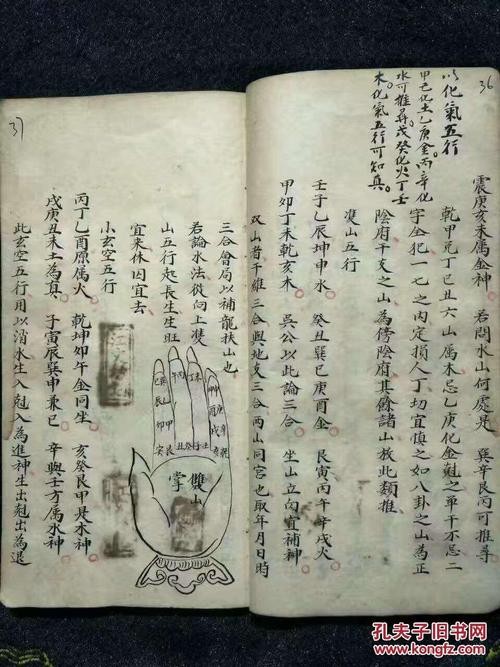 36
以化氣五行
甲己化土乙庚金丙辛化
水可推尋戊癸化火丁壬
木化氣五行可知真
震庚亥未屬庚金 若問水山何處是 巽辛艮丙可推尋
乾甲兑丁巳丑六山屬木忌乙庚化金剋之單干不忌二
字全犯一七之內定損人丁切宜慎之如八卦之山為正
陰府干支之山為傍陰府其餘諸山放此類推
雙山五行
壬子乙辰坤申水 癸丑巽巳庚酉金 艮寅丙午辛戌火
甲卯丁未乾亥木 吳公以此論三合 坐山立向宜補神
双山者干維三合與地支三合兩山同宮也取年月日時
37
三合會局以補龍扶山也
若論水法從向上雙
山五行起長生生旺
宜來休囚宜去
小玄空五行
丙丁乙酉原属火 乾坤卯午金同坐 亥癸艮甲是水神
戌庚丑未土為真 子寅辰巽申兼巳 辛與壬方属水神
此玄空五行用以消水生入剋入為進神生出剋出為退
雙山
掌
孔夫子旧书网
www.kongfz.com